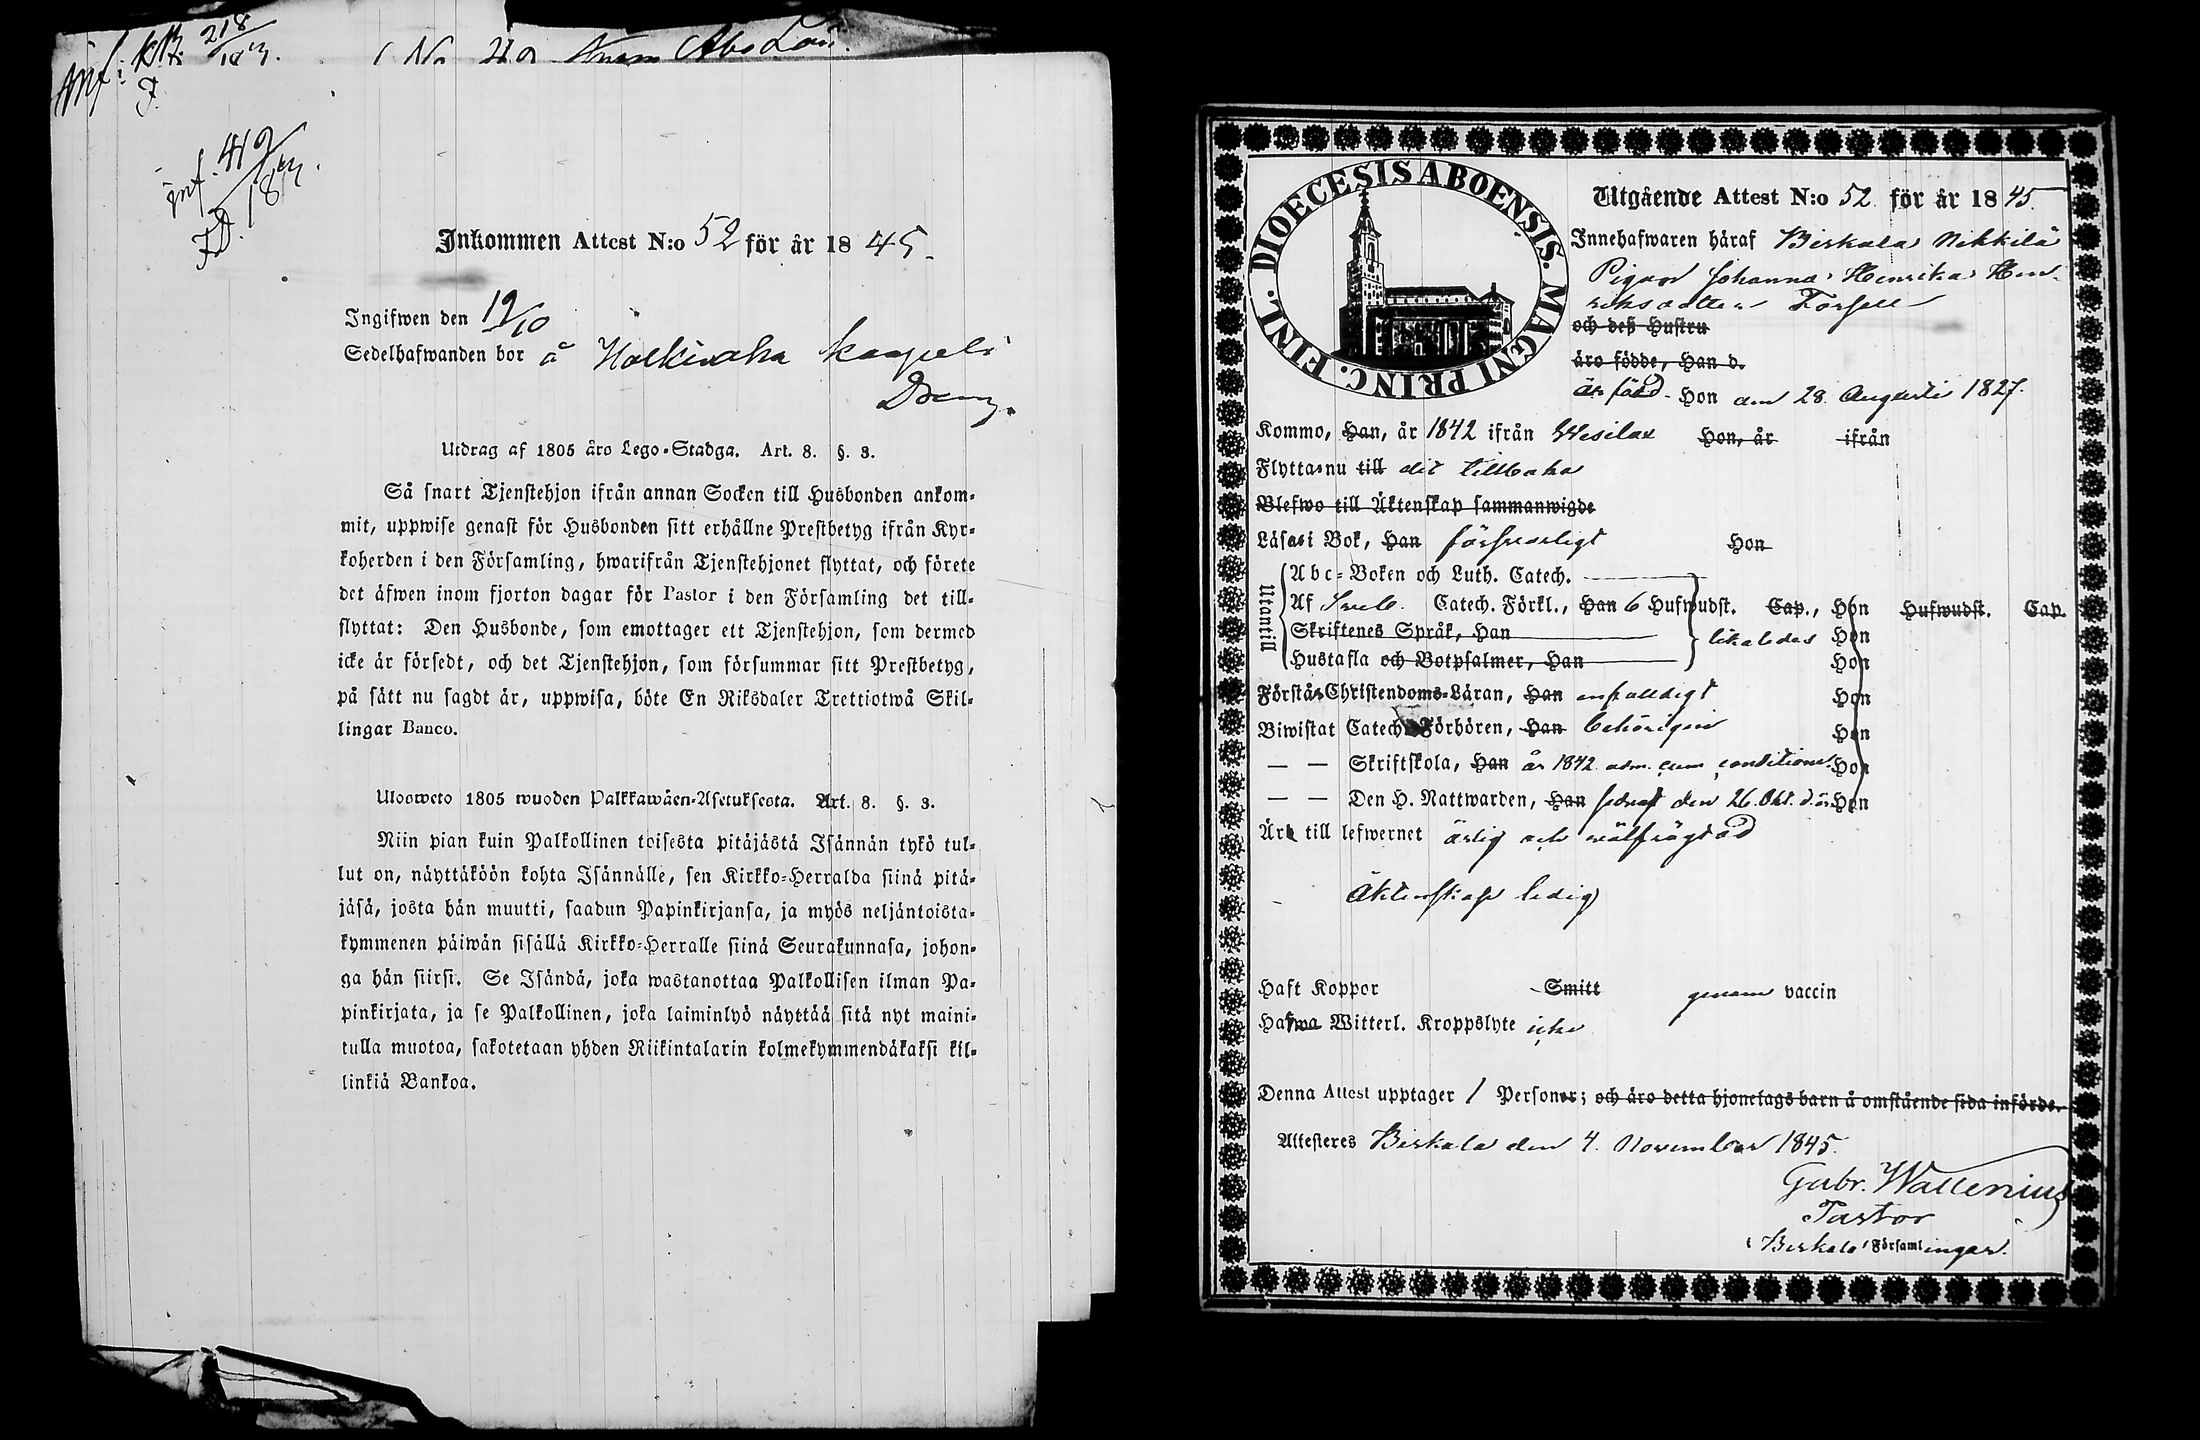 inf. kB. 218/10 m.
inf. 419/18 m.
Inkommen Attest N:o 52 för år 1845.
Ingifwen den 19/10
Sedelhafwanden bor å Holkivaha
Utdrag af 1805 års Lego-Stadga. Art. 8. §. 3.
Så snart Tjenstehjon ifrån annan Socken till Husbonden ankom-
mit, uppwise genast för Husbonden sitt erhållne Prestbetyg ifrån Kyr-
koherden i den Församling, hwarifrån Tjenstehjonet flyttat, och förete
det äfwen inom fjorton dagar för Pastor i den Församling det till-
flyttat: Den Husbonde, som emottager ett Tjenstehjon, som dermed
icke är försedt, och det Tjenstehjon, som försummar sitt Prestbetyg,
på sätt nu sagdt är, uppwisa, böte En Riksdaler Trettiotwå Skil-
lingar Banco.
Ulosweto 1805 wuoden Palkkawäen-Asetuksesta. Art. 8. §. 3.
Niin pian kuin Palkollinen toisesta pitäjästä Isännän tykö tul-
lut on, näyttäköön kohta Isännälle, sen Kirkko-Herralda siinä pitä-
jäsä, josta hän muutti, saadun Papinkirjansa, ja myös neljäntoista-
kymmenen päiwän sisällä Kirkko-Herralle siinä Seurakunnasa, johon-
ga hän siirsi. Se Isändä, joka wastanottaa Palkollisen ilman Pa-
pinkirjata, ja se Palkollinen, joka laiminlyö näyttää sitä nyt maini-
tulla muotoa, sakotetaan yhden Riikintalarin kolmekymmendäkaksi kil-
linkiä Bankoa.
DIOECESIS ABOENSIS. MAGNI PRINC. FINL.
Utgående Attest N:o 52 för år 1845.
Innehafwaren häraf Birkala Nikkilä
Pigan Johanna Henrika Hen-
riksdotter Forsell
och deß Hustru
äro födde, Han d.
är född Hon den 28 Augusti 1827.
Kommo, Han, år 1842 ifrån Wesilax Hon, år ifrån
Flytta nu till dit tillbaka
Blefwo till Äktenskap sammanwigde
Läsa i Bok, Han försvarligt Hon
Utantill
Abc-Boken och Luth. Catech.
Af Sveb. Catech. Förkl., Han 6 Hufwudst. Cap., Hon Hufwudst. Cap.
Skriftenes Språk, Han likaledes Hon
Hustafla och Botpsalmer, Han Hon
Förstå Christendoms-Läran, Han enfalldigt Hon
Biwistat Catech. Förhören, Han behörigen Hon
— — Skriftskola, Han år 1842 adm. cum conditione Hon
— — Den H. Nattwarden, Han sednast den 26. Okt. d. år Hon
Är till lefwernet ärlig och wälfrägdad
Äktenskap ledig
Haft Koppor Smitt genom vaccin
Hafwa Witterl. Kroppslyte icke
Denna Attest upptager 1 Personer; och äro detta hjonelags barn å omstående sida införde.
Attesteres Birkala den 4. November 1845.
Gabr. Wallenius
Pastor
i Birkala Församlingar.